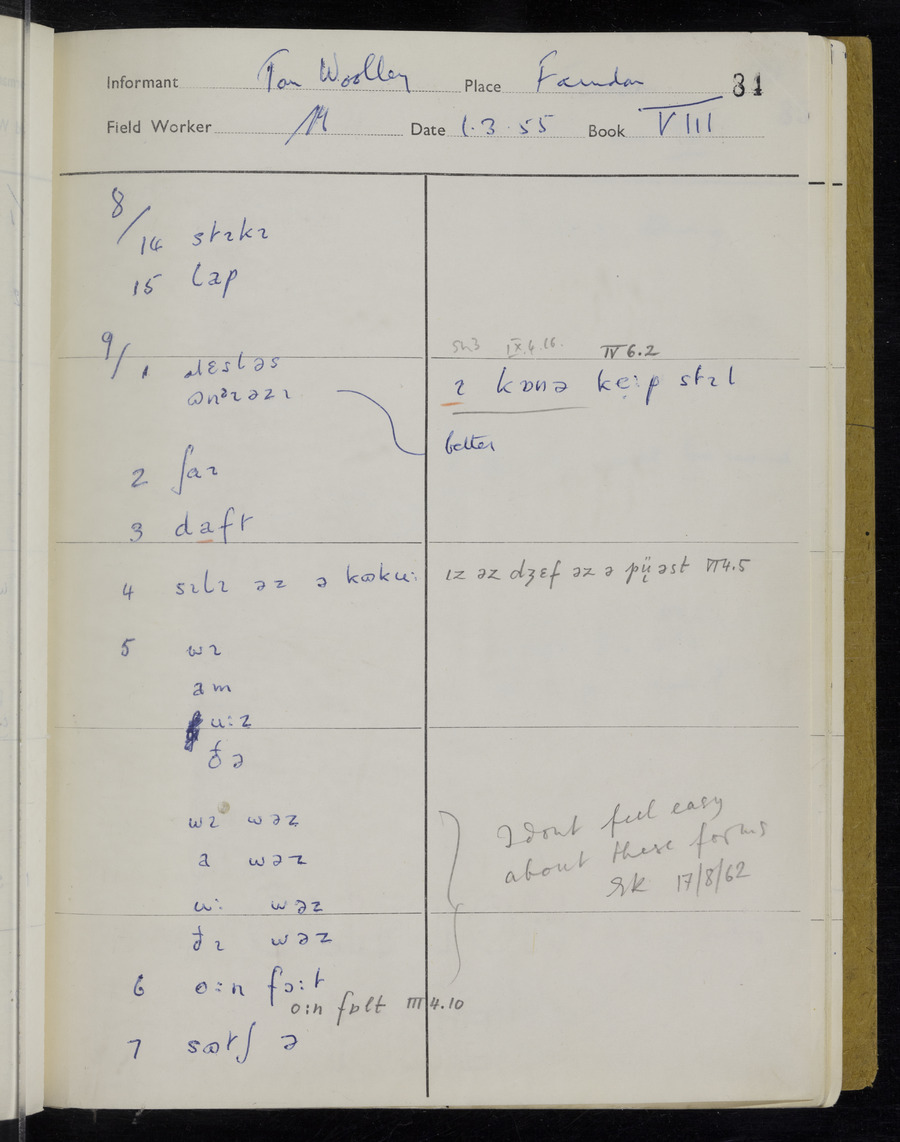 Informant Tom Woolley Place Farndon 31
Field Worker Date 1.3.55 Book VIII
8/14 stɪkɪ
15 lap
9/1 ɹɛstləs
ɷnᵊɪəzɪ
sh3 IX.4.16. IV 6.2
ɪ kɒnə kẹ:p stɪl
better
2 ʃaɪ
3 daft
4 sɪlɪ əz ə kɷku:
ɪz əz dʒɛf əz ə pü̜əst VI 4.5
5 wɪ
am
u:z
ðə
wɪ wəz
a wəz
u: wəz
ðɪ wəz
I dont feel easy
about these forms
SK 17/8/62
6 o:n fɔ:t
o:n fɒlt III 4.10
7 sɷtʃ ə